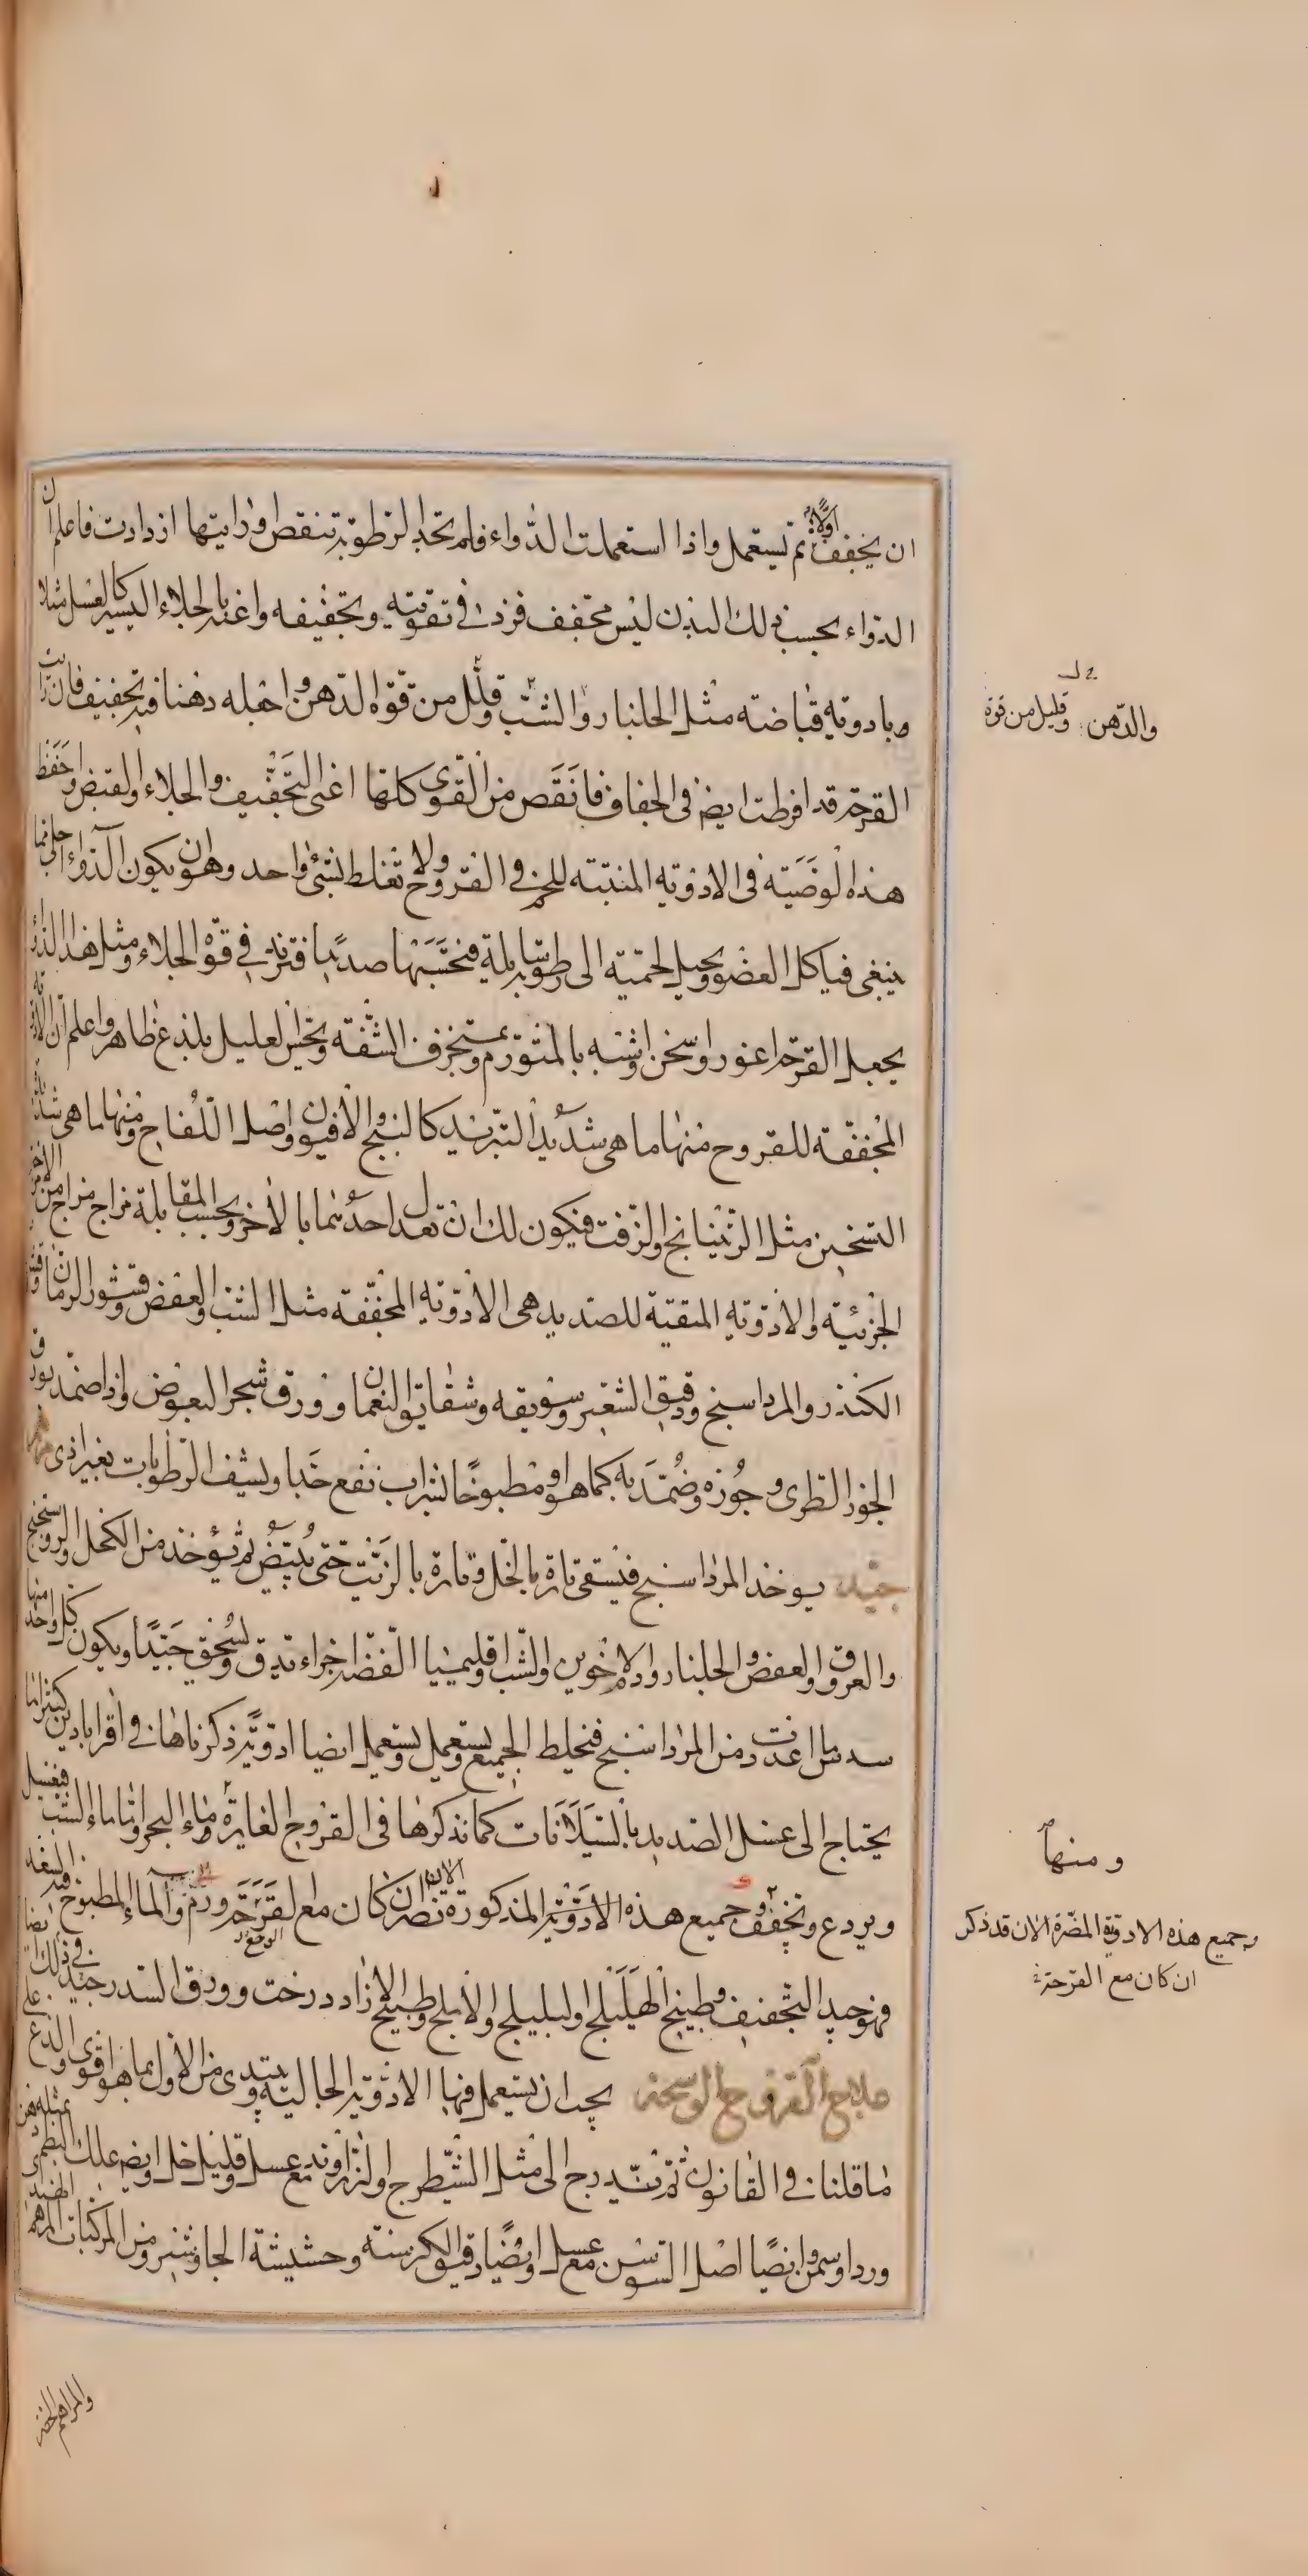 ان يخفف اولا ثم تستعمل واذا استعملت الدواء فلم تجد الرطوبة تنقص ورايتها ازدادت فاعلم ان
الدواء بحسب ذلك البدن ليس بمجفف فزد في تقويته وتجفيفه واعنه بالجلاء اليسير كالعسل مثلا
وبادوية قباضة مثل الجلنار والشب وقلل من قوة الدهن واجعله دهنا فيه تجفيف فان رايت
القرحة قد افرطت ايضا في الجفاف فانقص من القوى كلها اعنى التجفيف والجلاء والقبض واحفظ
هذه الوصية فى الادوية المنبتة للحم في القروح ولا تغلط بشئ واحد وهو ان يكون الدواء اجلى مما
ينبغى فياكل العضو ويحيل لحمته الى رطوبة سايلة فتحسبها صديدا فتزيد في قوة الجلاء ومثل هذا الدواء
يجعل القرحة اغور واسخن واشبه بالمتورم ومتخرف الشفة ويحس العليل بلذع ظاهر واعلم ان الادوية
المجففة للقروح منها ما هى شديد التبريد كالبنج والافيون واصل اللفاح ومنها ما هى شديدة
التسخين مثل الرتيانج والزفت فيكون لك ان تعدل احدهما بالاخر وبحسب المقابلة مزاج مزاج من الامزجة
الجزئية والادوية المنقية للصديد هى الادوية المجففة مثل الشب والعفص وقشور الرمان وقشور
الكندر والمرداسنج ودقيق الشعير وسويقه وشقايق النعمان وورق شجر البعوض واذا ضمد بورق
الجوز الطرى وجوزه وضمد به كما هو او مطبوخا بشراب نفع جدا ونشف الرطوبات بغير اذى مرهم
جيد يوخذ المرداسنج فيسقى تارة بالخل وتارة بالزيت حتى يبيض ثم يؤخذ من الكحل والروسختج
والعروق والعفص والجلنار ودم الاخوين والشب واقليميا الفضة اجزاء تدق وتسحق جيدا ويكون كل واحد منها
سدس ما اعددت من المرداسنج فتخلط الجميع ويستعمل ويستعمل ايضا ادوية ذكرناها في اقرابادين وكثيرا ما
يحتاج الى غسل الصديد بالسيالانات كما نذكرها فى القروح الغايرة وماء البحر واما ماء الشب فيغسل
ويردع ويجفف وجميع هذه الادوية المذكورة تضر الان ان كان مع القرحة ورم والماء المطبوخ فيه السعد
فهو جيد التجفيف وطبيخ الهليلج والبليلج والاملج وطبيخ ازاد درخت وورق السدر جيد في ذلك ايضا
علاج القروح الوسخة يجب ان يستعمل فيها الادوية الجالية ويبتدى من الاول بما هو اقوى والذع على
ما قلنا في القانون ثم يتدرج الى مثل الشيطرج والزراوند مع عسل وقليل خل وايضا علك البطم بمثله دهن
ورد او سمن وايضا اصل السوسن مع عسل وايضا دقيق الكرسنة وحشيشة الجاوشير ومن المركبات المرهم الهندى
والمراهم الخضر
والدهن
وقليل من قوة
ومنها
وجميع هذه الادوية المضرة الان قد ذكر
ان كان مع القرحة